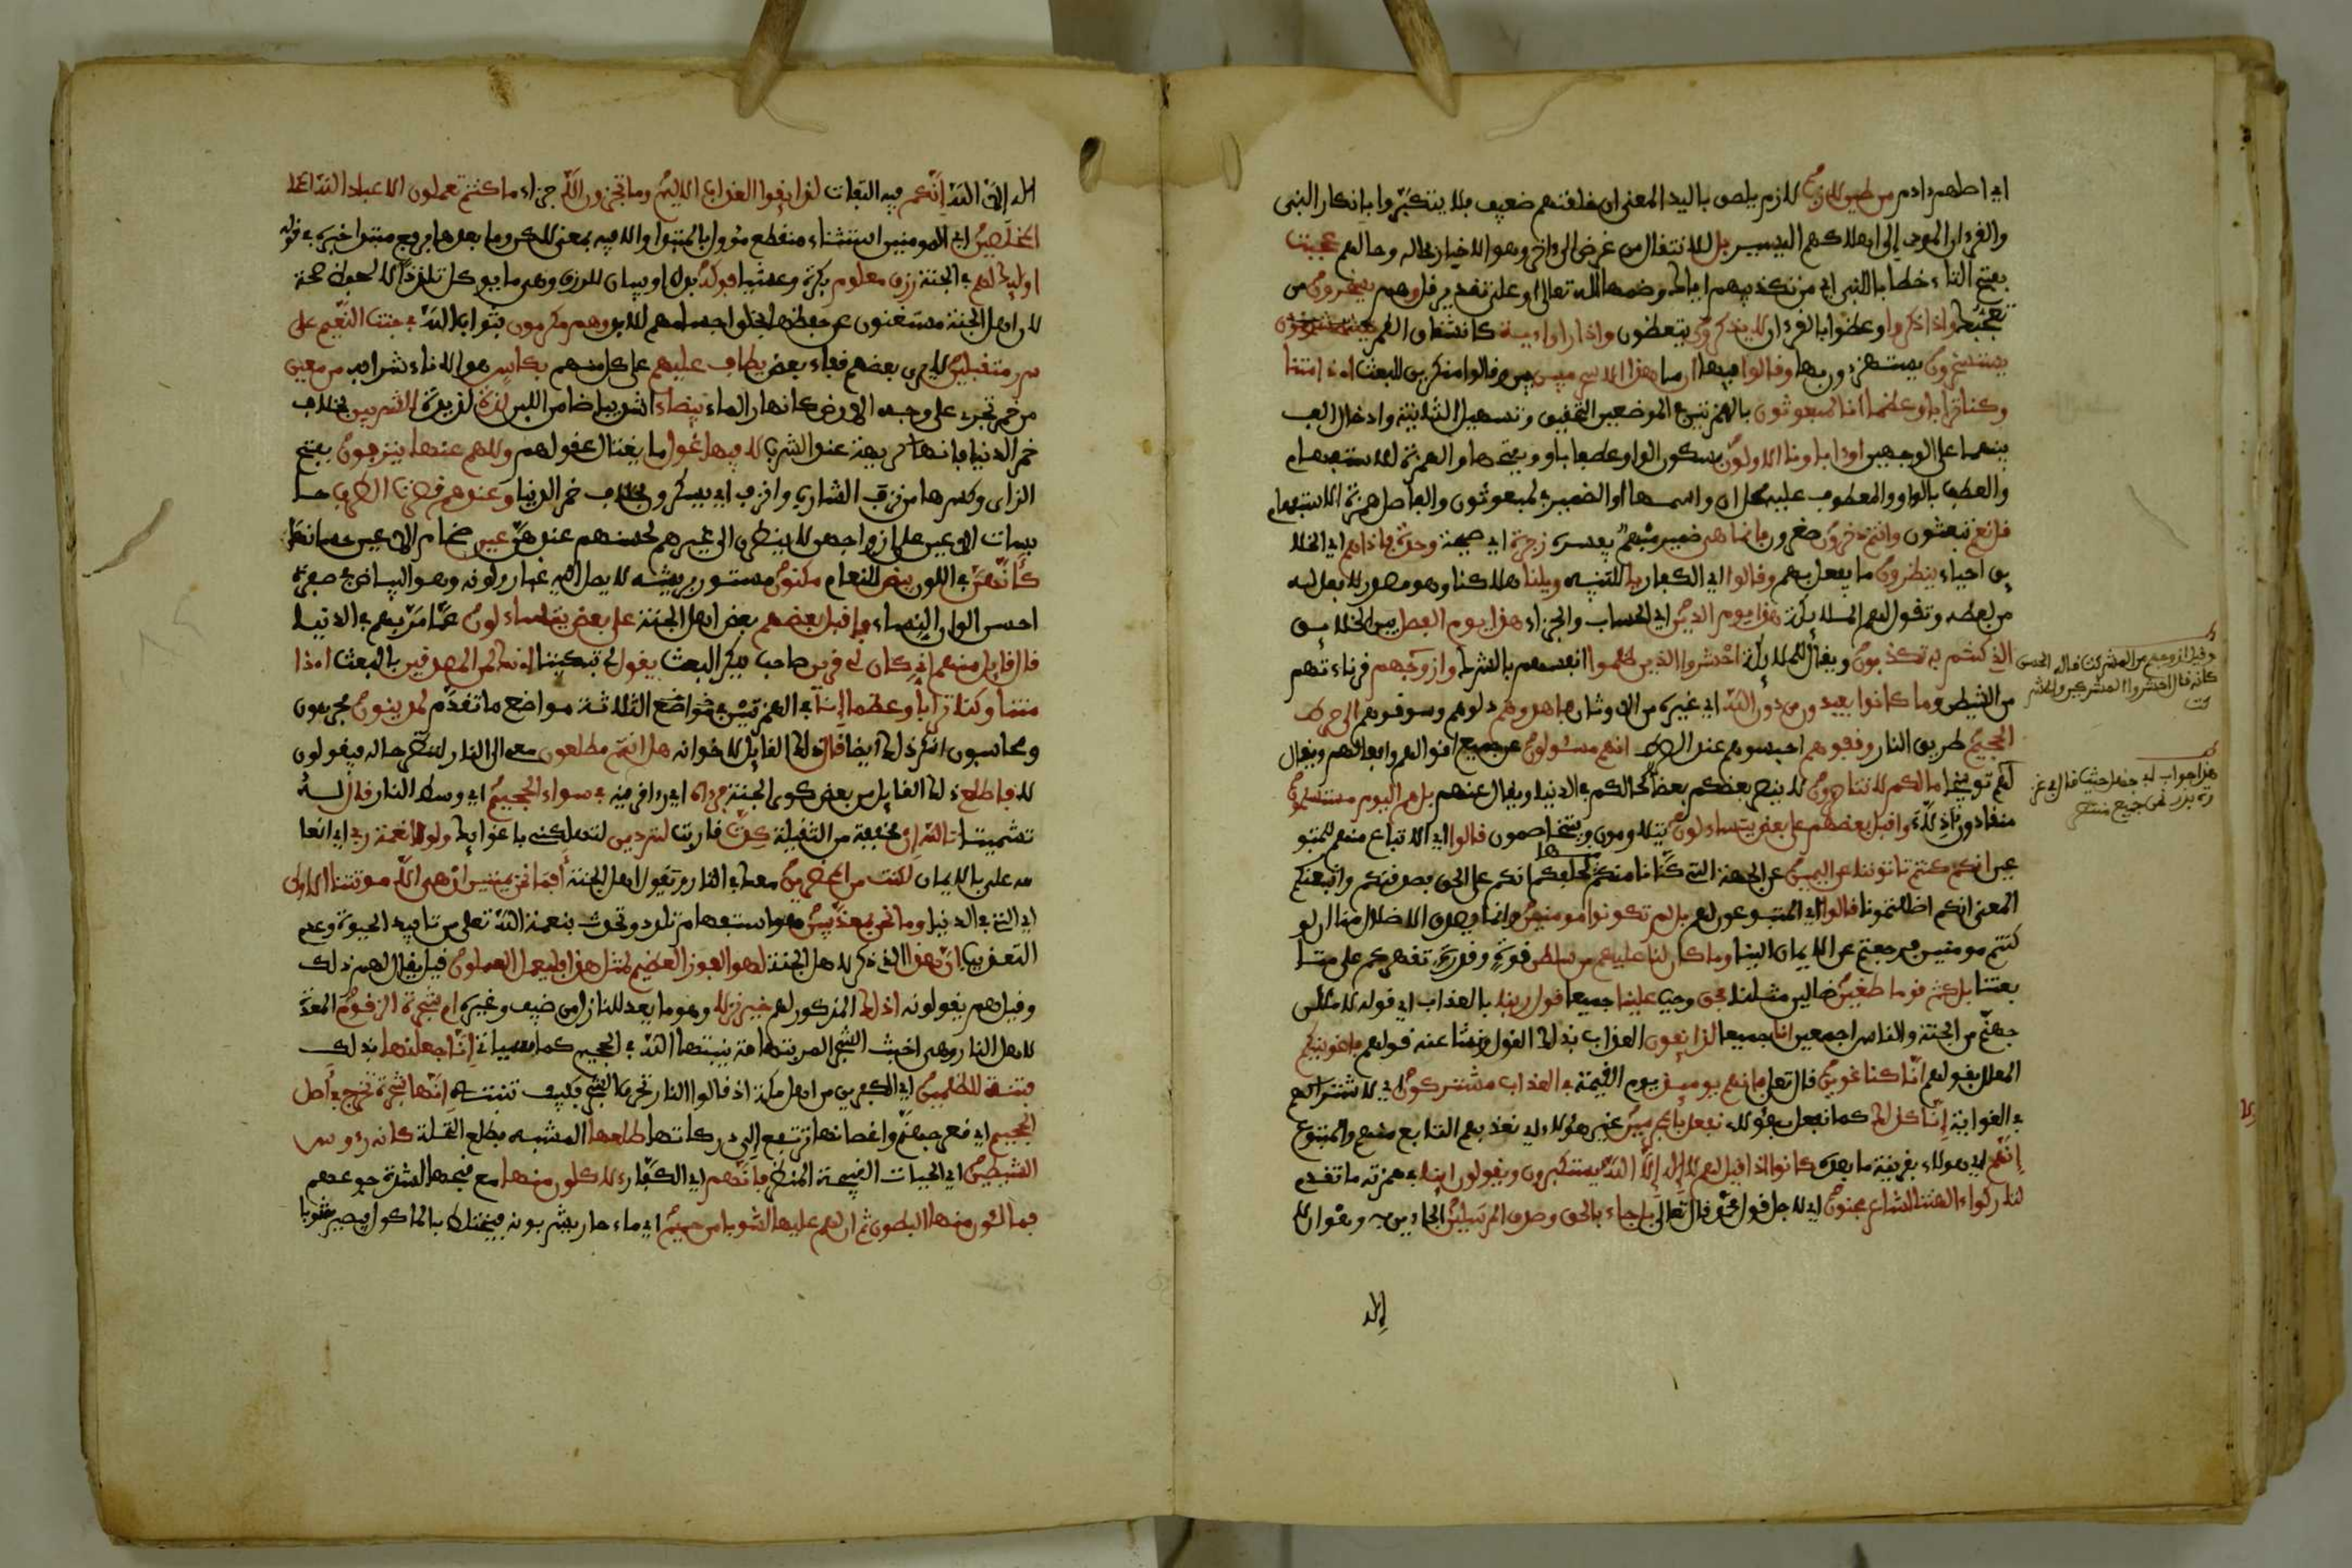 اي اصلهم ءادم من طين لازب لازم يلصق باليد المعنى ان خلقتهم ضعيف فلا يتكبروا بانكار النبى
والقرءان المودى إلى اهلاكهم اليسير بل للانتقال من غرض الى ءاخر وهو الاخبار بحاله وحالهم عجبت
بفتح التاء خطابا للنبى اي من تكذيبهم اياك وضمها لله تعالى او على تقدير قل وهم يسخرون من
تعجبك واذا ذكروا وعظوا بالقرءان لا يذكرون يتعظون واذا راوا ءاية كانشقاق القمر
يستسخرون يستهزءون بها وقالوا فيها ان ما هذا الا سحر مبين بين وقالوا منكرين للبعث اءذا متنا
وكنا ترابا وعظما انا لمبعوثون بالهمزتين في الموضعين التحقيق وتسهيل الثانية وادخال الف
بينهما على الوجهين اوءاباونا الاولون بسكون الواو عطفا باو وبفتحها والهمزة للاستفهام
والعطف بالواو والمعطوف عليه محل ان واسمها او الضمير في لمبعوثون والفاصل همزة الاستفهام
قل نعم تبعثون وانتم دخرون صغرون فانما هى ضمير مبهم يفسره زجرة اي صيحة وحدة فاذا هم اي الخلا
يق احياء ينظرون ما يفعل بهم وقالوا اي الكفار يا للتنبيه ويلنا هلاكنا وهو مصدر لا فعل له
من لفظه وتقول لهم الملايكة هذا يوم الدين اي الحساب والجزاء هذا يوم الفصل بين الخلايق
الذي كنتم به تكذبون ويقال للملايكة احشروا الذين ظلموا انفسهم بالشرك وازوجهم قرناءهم
من الشيطين وما كانوا يعبدون من دون الله اي غيره من الاوثان فاهدوهم دلوهم وسوقوهم الى صرط
الجحيم طريق النار وقفوهم احبسوهم عند الصرط انهم مسئولون عن جميع اقوالهم وافعالهم ويقال
لهم توبيخا ما لكم لا تناصرون لا ينصر بعضكم بعضا كحالكم في الدنيا ويقال عنهم بل هم اليوم مستسلمون
منقادون اذلاء واقبل بعضهم على بعض يتساءلون يتلاومون ويتخاصمون قالوا اي الاتباع منهم للمتبو
عين انكم كنتم تاتوننا عن اليمين عن الجهة التى كنا نامنكم منها لحلفكم انكم على الحق فصدقنكم واتبعنكم
المعنى انكم اضللتمونا قالوا اي المتبوعون لهم بل لم تكونوا مومنين وانما يصدق الاضلال منا ان لو
كنتم مومنين فرجعتم عن الايمان الينا وما كان لنا عليكم من سلطن قوة وقدرة تقهركم على متا
بعتنا بل كنتم قوما طغين ضالين مثلنا فحق وجب علينا جميعا قول ربنا بالعذاب اي قوله لاملان
جهنم من الجنة والناس اجمعين انا جميعا لذايقون العذاب بذلك القول ونشا عنه قولهم فاغوينكم
المعلل بقولهم انا كنا غوين قال تعلى فانهم يوميذ يوم القيمة في العذاب مشتركون اي لاشتراكهم
في الغواية انا كذلك كما نفعل بهؤلاء نفعل بالمجرمين غير هؤلاء اي نعذبهم التابع منهم والمتبوع
انهم اي هولاء بقرينة ما بعده كانوا اذا قيل لهم لا اله الا الله يستكبرون ويقولون اينا في همزته ما تقدم
لتاركوا ءالهتنا لشاعر مجنون اي لاجل قول محمد قال تعالى بل جاء بالحق وصدق المرسلين الجاءين به وهو ان لا
اله
وقيل ازوجهم من المشركت قاله الحسن
كانه قال احشروا المشركين والمشر
كت
هذا جواب ابى جهل حيث قال في غز
وة بدر نحن جميع منتصر
اله الا الله انكم فيه التفات لذايقوا العذاب الاليم وما تجزون الا جزاء ما كنتم تعملون الا عباد الله ا
المخلصين اي المومنين استثناء منقطع مؤول بالمبتدا والا فيه بمعنى لكن وما بعدها مرفوع مبتدا خبره في قوله
اوليك لهم في الجنة رزق معلوم بكرة وعشيا فوكه بدل او بيان للرزق وهى ما يوكل تلذذا لا لحفظ صحة
لان اهل الجنة مستغنون عن حفظها بخلق اجسامهم للابد وهم مكرمون بثواب الله في جنت النعيم على
سرر متقبلين لا يرى بعضهم قفاء بعض يطاف عليهم على كل منهم بكاس هو الاناء بشرابه من معين
من خمر تجرى على وجه الارض كانهار الماء بيضاء اشد بياضا من اللبن لذة لذيذة للشربين بخلاف
خمر الدنيا فانها كريهة عند الشرب لا فيها غول ما يغتال عقولهم ولا هم عنها ينزفون بفتح
الزاى وكسرها من نزف الشارب وانزف اي يسكرون بخلاف خمر الدنيا وعندهم قصرت الطرف حا
بسات الاعين على ازواجهن لا ينظرن الى غيرهم لحسنهم عندهن عين ضخام الاعين حسانها
كانهن في اللون بيض للنعام مكنون مستور بريشه لا يصل اليه غبار ولونه وهو البياض في صفرة
احسن الوان النساء فاقبل بعضهم بعض اهل الجنة على بعض يتساءلون عما مر بهم في الدنيا
قال قايل منهم انى كان لى قرين صاحب ينكر البعث يقول لى تبكيتا اءنك لمن المصدقين بالبعث اءذا
متنا وكنا ترابا وعظما اءنا في الهمزتين في الثلاثة مواضع ما تقدم لمدينون مجزيون
ومحاسبون انكر ذلك ايضا قال ذلك القايل لاخوانه هل انتم مطلعون معى الى النار لننظر حاله فيقولون
لا فاطلع ذلك القايل من بعض كوى الجنة فرءاه اي رءا قرينه في سواء الجحيم اي وسط النار قال له
تشميتا تالله ان مخففة من الثقيلة كدت قاربت لتردين لتهلكنى باغوايك ولولا نعمة ربى اي انعا
مه على بالايمان لكنت من المحضرين معك في النار وتقول اهل الجنة افما نحن بميتين الا موتتنا الاولى
اي التى في الدنيا وما نحن بمعذبين هو استفهام تلذذ وتحدث بنعمة الله تعلى من تاييد الحيوة وعدم
التعذيب ان هذا الذي ذكر لاهل الجنة لهو الفوز العظيم لمثل هذا فليعمل العملون قيل يقال لهم ذلك
وقيل هم يقولونه اذلك المذكور لهم خير نزلا وهو ما يعد للنازل من ضيف وغيره ام شجرة الزقوم المعدة
لاهل النار وهى اخبث الشجر المر بتهامة ينبتها الله في الجحيم كما سياتى انا جعلنها بذلك
فتنة للظلمين اي الكفرين من اهل مكة اذ قالوا النار تحرق الشجر فكيف تنبته انها شجرة تخرج في اصل
الجحيم اي قعر جهنم واغصانها ترتفع الى دركاتها طلعها المشبه بطلع النخلة كانه رءوس
الشيطين اي الحيات القبيحة المنظر فانهم اي الكفار لاكلون منها مع قبحها لشدة جوعهم
فمالئون منها البطون ثم ان لهم عليها لشوبا من حميم اي ماء حار يشربونه فيختلط بالماكول فيصير شوبا